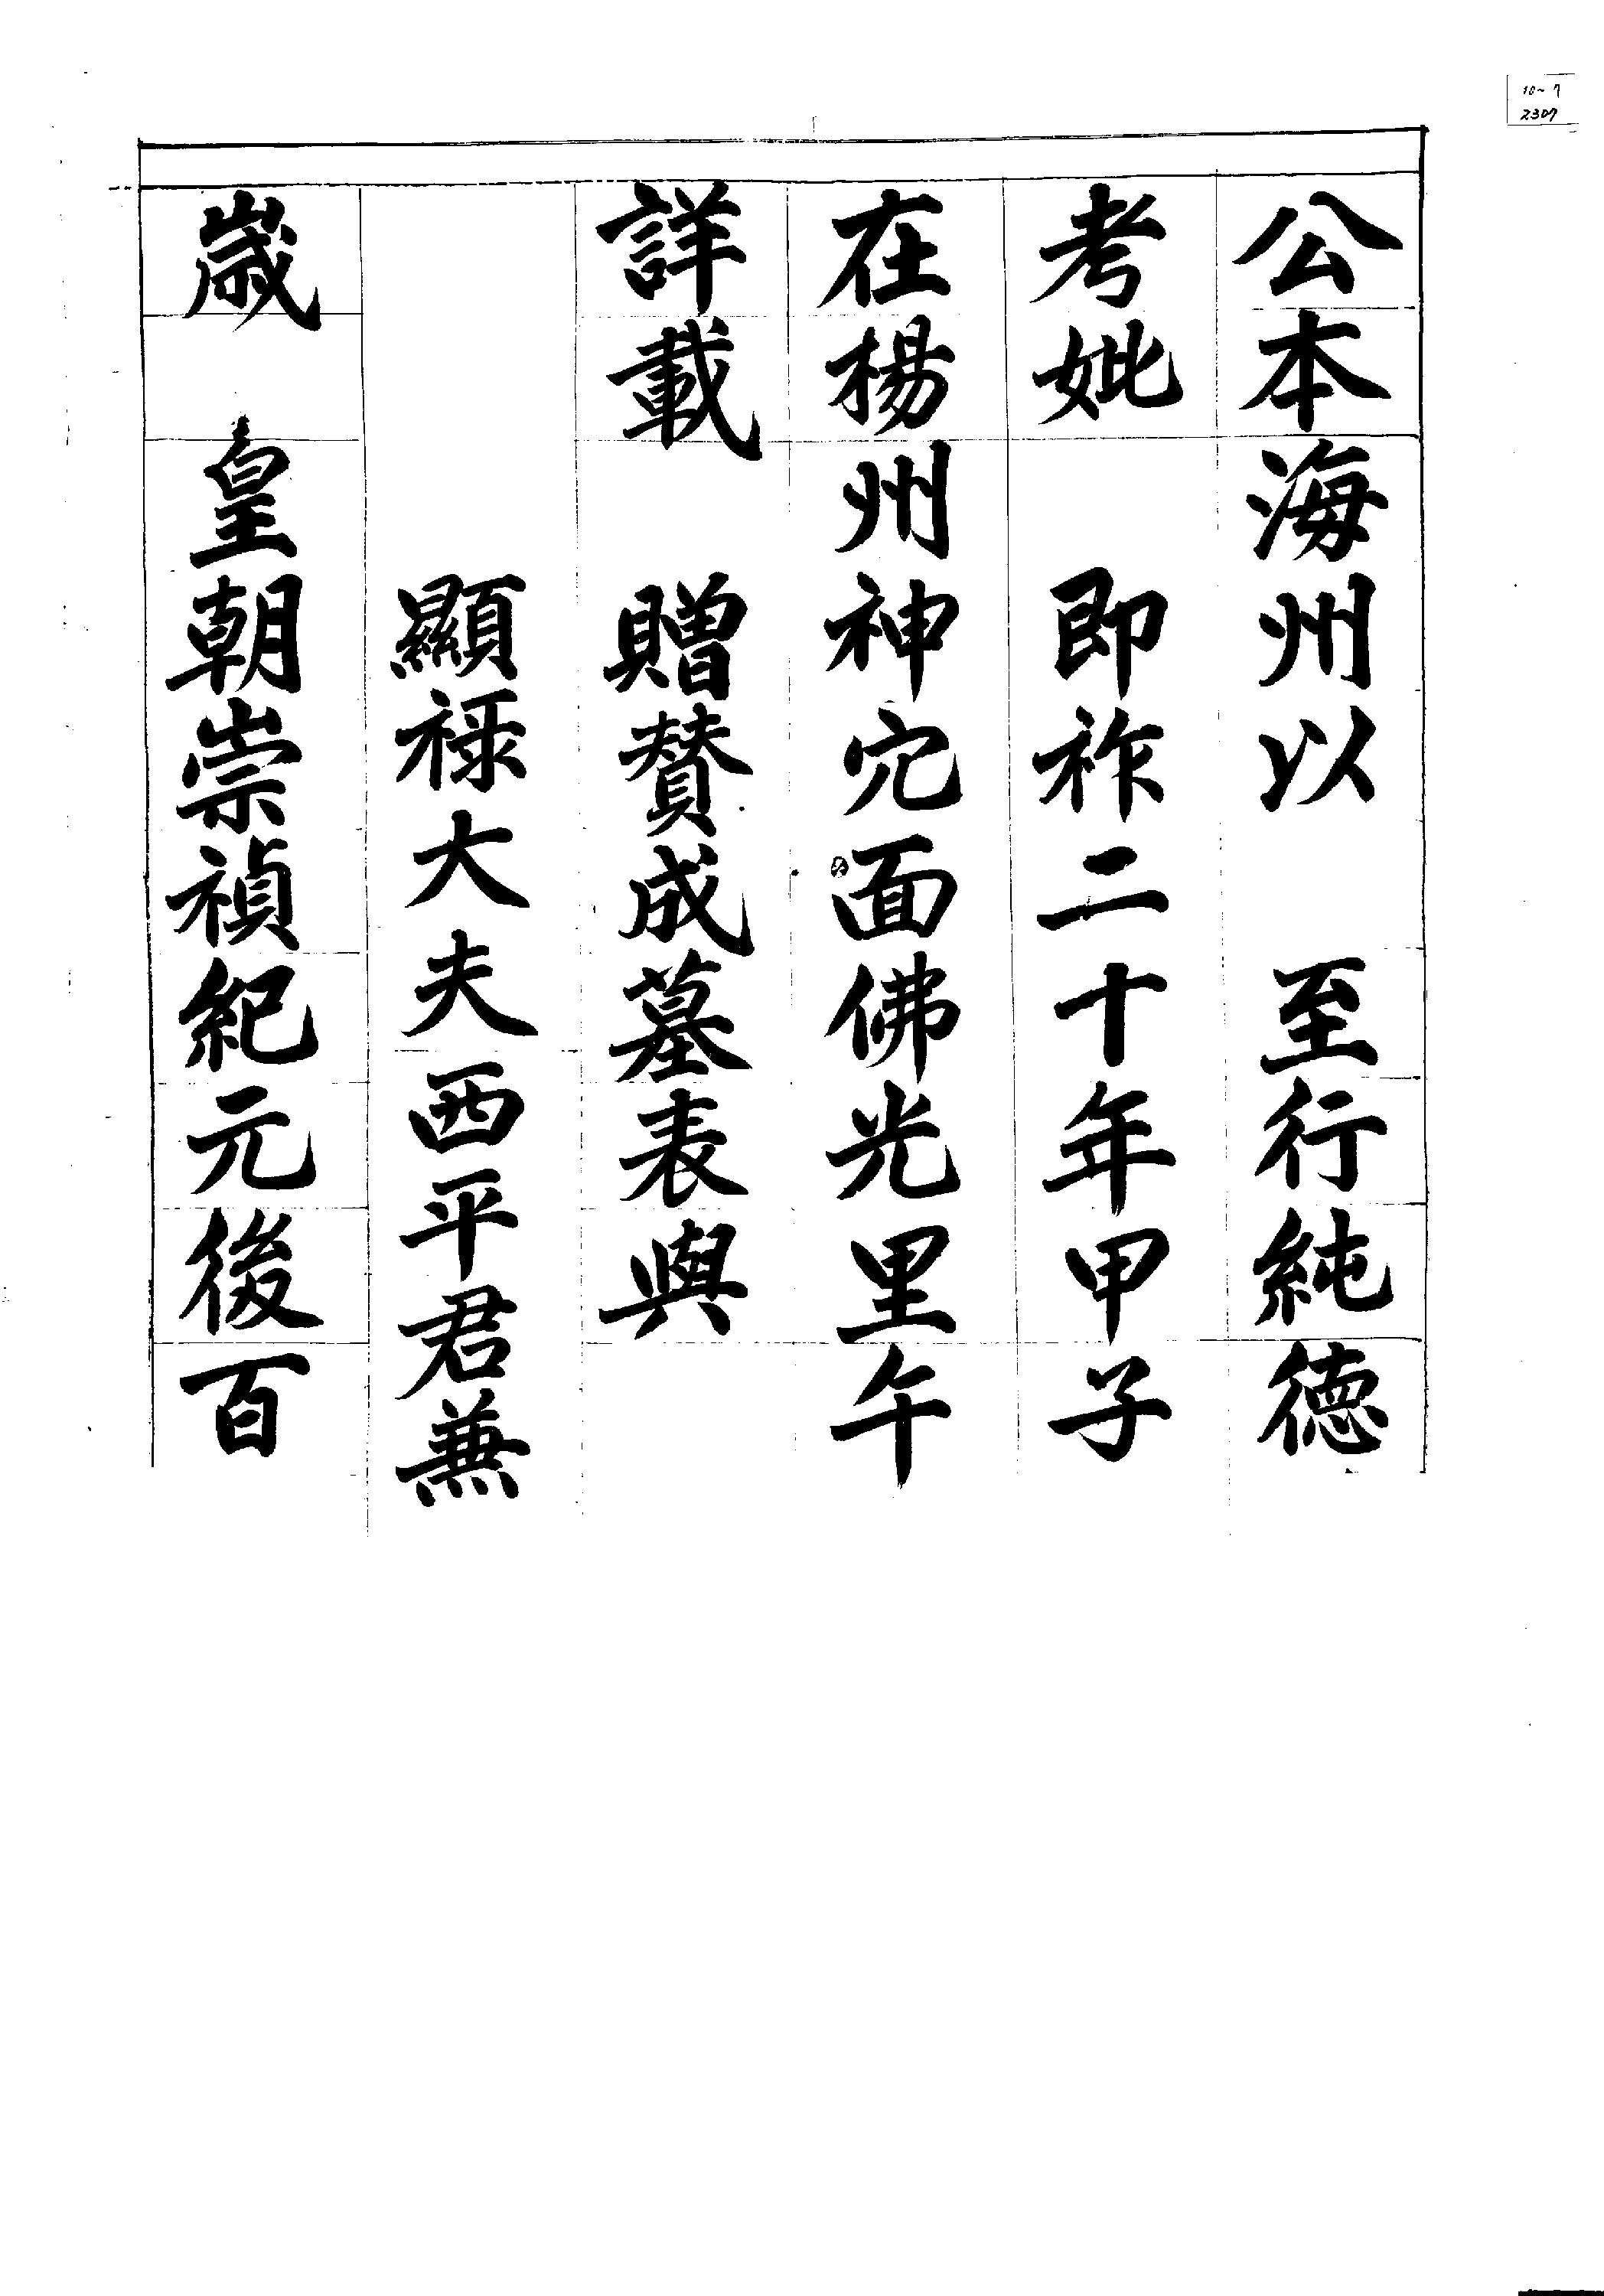 10-7
2307
公本海州以 至行純德
考妣 即祚二十年甲子
在楊州神穴面佛光里午
詳載 贈賛成墓表與
顯祿大夫西平君兼
歲 皇朝崇禎紀元後百